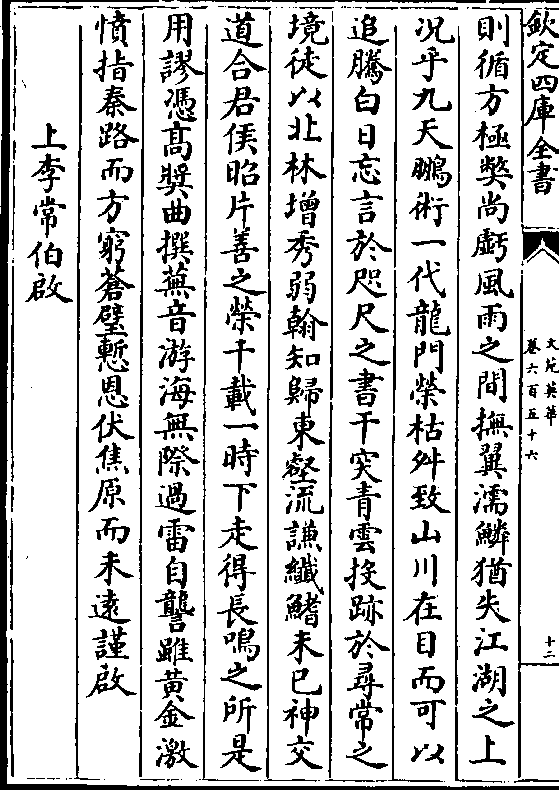 欽定四庫全書
文苑英華
卷六百五十六
十二
則循方極獘尚虧風雨之間撫翼濡鱗猶失江湖之上
况乎九天鵬術一代龍門榮枯舛致山川在目而可以
追騰白日忘言於咫尺之書干突青雲投跡於尋常之
境徒以北林增秀弱翰知歸東壑流謙纎鰭未已神交
道合君侯昭片善之榮千載一時下走得長鳴之所是
用謬憑髙奬曲撰蕪音游海無際過雷自聾雖黄金激
憤指秦路而方窮蒼璧慙恩伏焦原而未遠謹啟
上李常伯啟